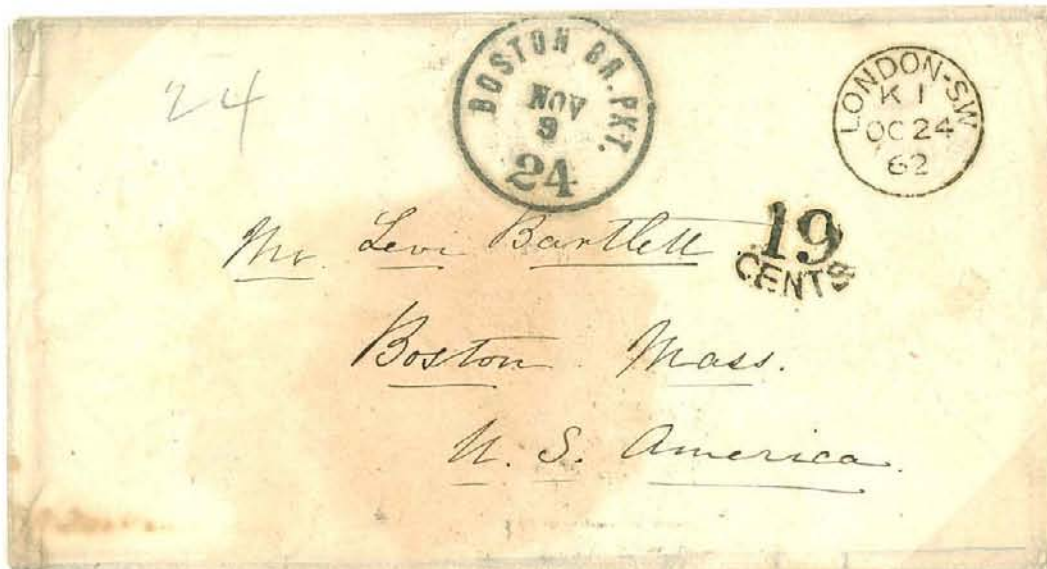 24
BOSTON BR. PKT.
NOV
9
24
LONDON-SW
K 1
OC 24
62
19
CENTS
Mr. Levi Bartlett
Boston Mass.
U. S. America.